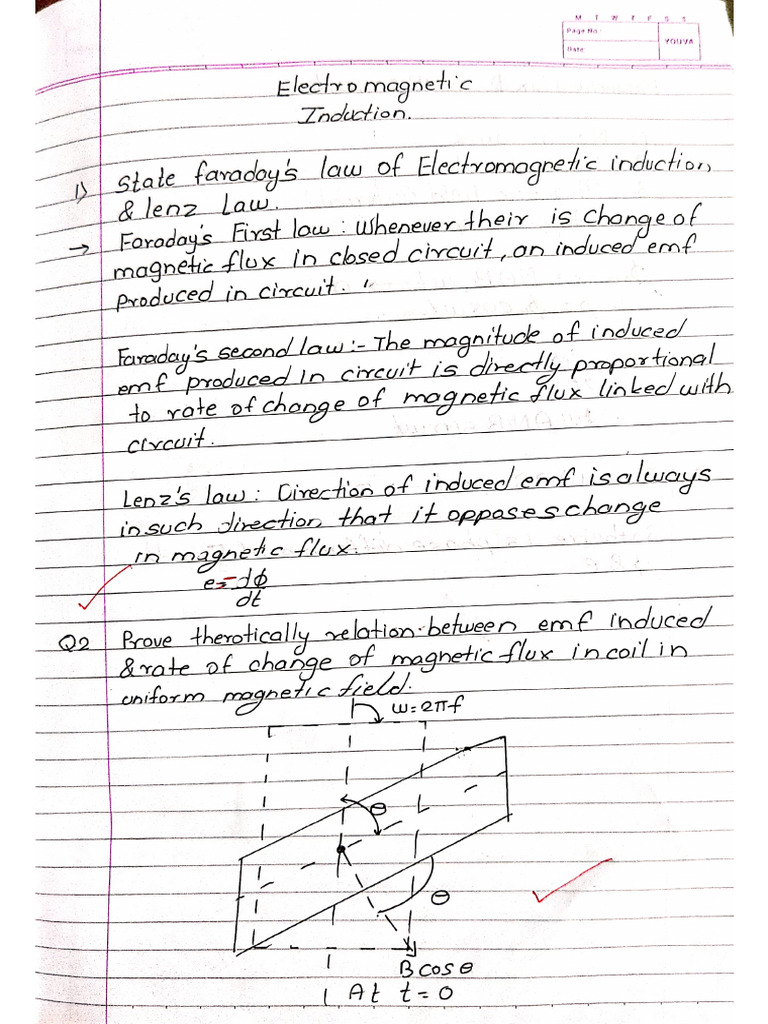 M T W T F S S
Page No.:
Date:
YOUVA
Electromagnetic
Induction.
1) State faraday's law of Electromagnetic induction,
& lenz Law.
→ Faraday's First law : Whenever their is change of
magnetic flux in closed circuit, an induced emf
produced in circuit.
Faraday's second law :- The magnitude of induced
emf produced in circuit is directly proportional
to rate of change of magnetic flux linked with
circuit.
Lenz's law : Direction of induced emf is always
in such direction that it opposes change
in magnetic flux.
e = -dϕ
dt
Q2 Prove therotically relation between emf induced
& rate of change of magnetic flux in coil in
uniform magnetic field.
w = 2πf
θ
θ
B cos θ
At t = 0